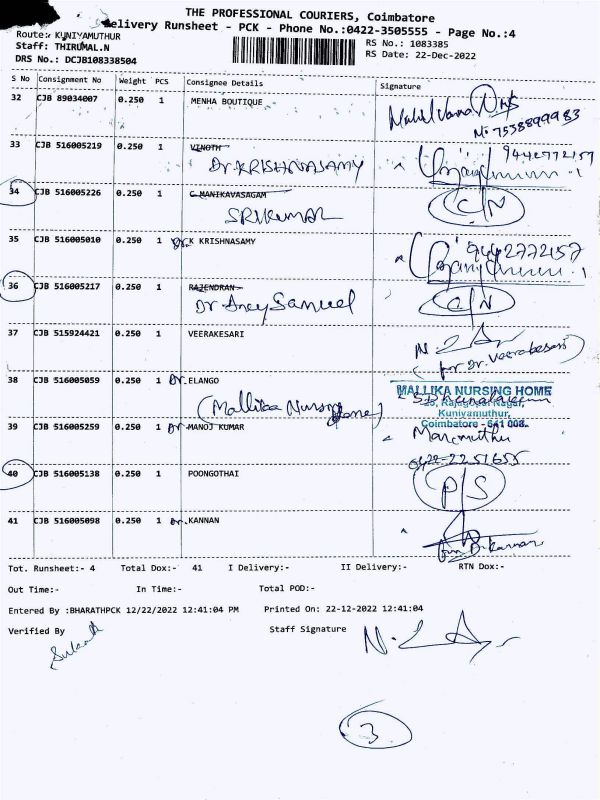 THE PROFESSIONAL COURIERS, Coimbatore
Delivery Runsheet - PCK - Phone No.:0422-3505555 - Page No.:4
Route: KUNIYAMUTHUR
Staff: THIRUMAL.N
DRS No.: DCJB108338504
RS No.: 1083385
RS Date: 22-Dec-2022
S No Consignment No Weight PCS Consignee Details Signature
32 CJB 89034007 0.250 1 MENHA BOUTIQUE
M: 7538899983
33 CJB 516005219 0.250 1 VINOTH 9442772157
Dr. KRISHNASAMY
34 CJB 516005226 0.250 1 C MANIKAVASAGAM C/N
SRIKUMAR
35 CJB 516005010 0.250 1 Dr. K KRISHNASAMY 9442772157
36 CJB 516005217 0.250 1 RAJENDRAN C/N
Dr. Samuel
37 CJB 515924421 0.250 1 VEERAKESARI
(for Dr. Veerakesari)
38 CJB 516005059 0.250 1 Dr. ELANGO MALLIKA NURSING HOME
(Mallika Nursing Home) 25, Rajagopal Nagar,
Kuniyamuthur,
39 CJB 516005259 0.250 1 Dr MANOJ KUMAR Coimbatore - 641 008.
Marimuthu
0422-2251655
40 CJB 516005138 0.250 1 POONGOTHAI P/S
41 CJB 516005098 0.250 1 Dr. KANNAN
Tot. Runsheet:- 4 Total Dox:- 41 I Delivery:- II Delivery:- RTN Dox:-
Out Time:- In Time:- Total POD:-
Entered By :BHARATHPCK 12/22/2022 12:41:04 PM Printed On: 22-12-2022 12:41:04
Verified By Staff Signature
3